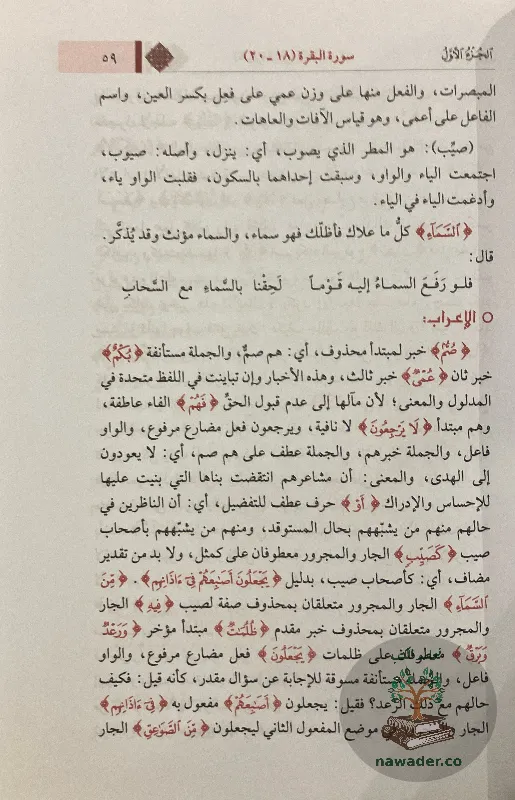 الجُزءُ الأوّل
سورة البقرة (١٨ ـ ٢٠)
٥٩
المبصرات، والفعل منها على وزن عمي على فعِل بكسر العين، واسم
الفاعل على أعمى، وهو قياس الآفات والعاهات.
(صيِّب): هو المطر الذي يصوب، أي: ينزل، وأصله: صيوب،
اجتمعت الياء والواو، وسبقت إحداهما بالسكون، فقلبت الواو ياء،
وأدغمت الياء في الياء.
﴿السَّمَآءِ﴾ كلُّ ما علاك فأظلّك فهو سماء، والسماء مؤنث وقد يُذكَّر.
قال:
فلو رَفَعَ السماءُ إليه قَوْماً لَحِقْنا بالسَّماءِ مع السَّحابِ
○ الإعراب:
﴿صُمٌّ﴾ خبر لمبتدأ محذوف، أي: هم صمٌّ، والجملة مستأنفة ﴿بُكْمٌ﴾
خبر ثان ﴿عُمْىٌ﴾ خبر ثالث، وهذه الأخبار وإن تباينت في اللفظ متحدة في
المدلول والمعنى؛ لأن مآلها إلى عدم قبول الحقِّ ﴿فَهُمْ﴾ الفاء عاطفة،
وهم مبتدأ ﴿لَا يَرْجِعُونَ﴾ لا نافية، ويرجعون فعل مضارع مرفوع، والواو
فاعل، والجملة خبرهم، والجملة عطف على هم صم، أي: لا يعودون
إلى الهدى، والمعنى: أن مشاعرهم انتقضت بناها التي بنيت عليها
للإحساس والإدراك ﴿أَوْ﴾ حرف عطف للتفضيل، أي: أن الناظرين في
حالهم منهم من يشبّههم بحال المستوقد، ومنهم من يشبّههم بأصحاب
صيب ﴿كَصَيِّبٍ﴾ الجار والمجرور معطوفان على كمثل، ولا بد من تقدير
مضاف، أي: كأصحاب صيب، بدليل ﴿يَجْعَلُونَ أَصَٰبِعَهُمْ فِىٓ ءَاذَانِهِم﴾. ﴿مِّنَ
السَّمَآءِ﴾ الجار والمجرور متعلقان بمحذوف صفة لصيب ﴿فِيهِ﴾ الجار
والمجرور متعلقان بمحذوف خبر مقدم ﴿ظُلُمَٰتٌ﴾ مبتدأ مؤخر ﴿وَرَعْدٌ
وَبَرْقٌ﴾ معطوفان على ظلمات ﴿يَجْعَلُونَ﴾ فعل مضارع مرفوع، والواو
فاعل، والجملة مستأنفة مسوقة للإجابة عن سؤال مقدر، كأنه قيل: فكيف
حالهم مع ذلك الرعد؟ فقيل: يجعلون ﴿أَصَٰبِعَهُمْ﴾ مفعول به ﴿فِىٓ ءَاذَانِهِم﴾
الجار موضع المفعول الثاني ليجعلون ﴿مِّنَ الصَّوَٰعِقِ﴾ الجار
nawader.co